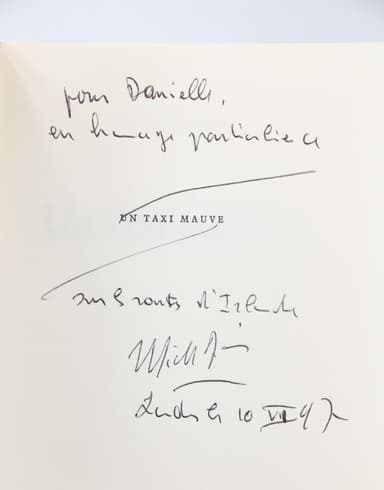 pour Danielle,
en hommage particulier ce
UN TAXI MAUVE
sur les routes d'Irlande
Michel Déon
le 10 VII 97